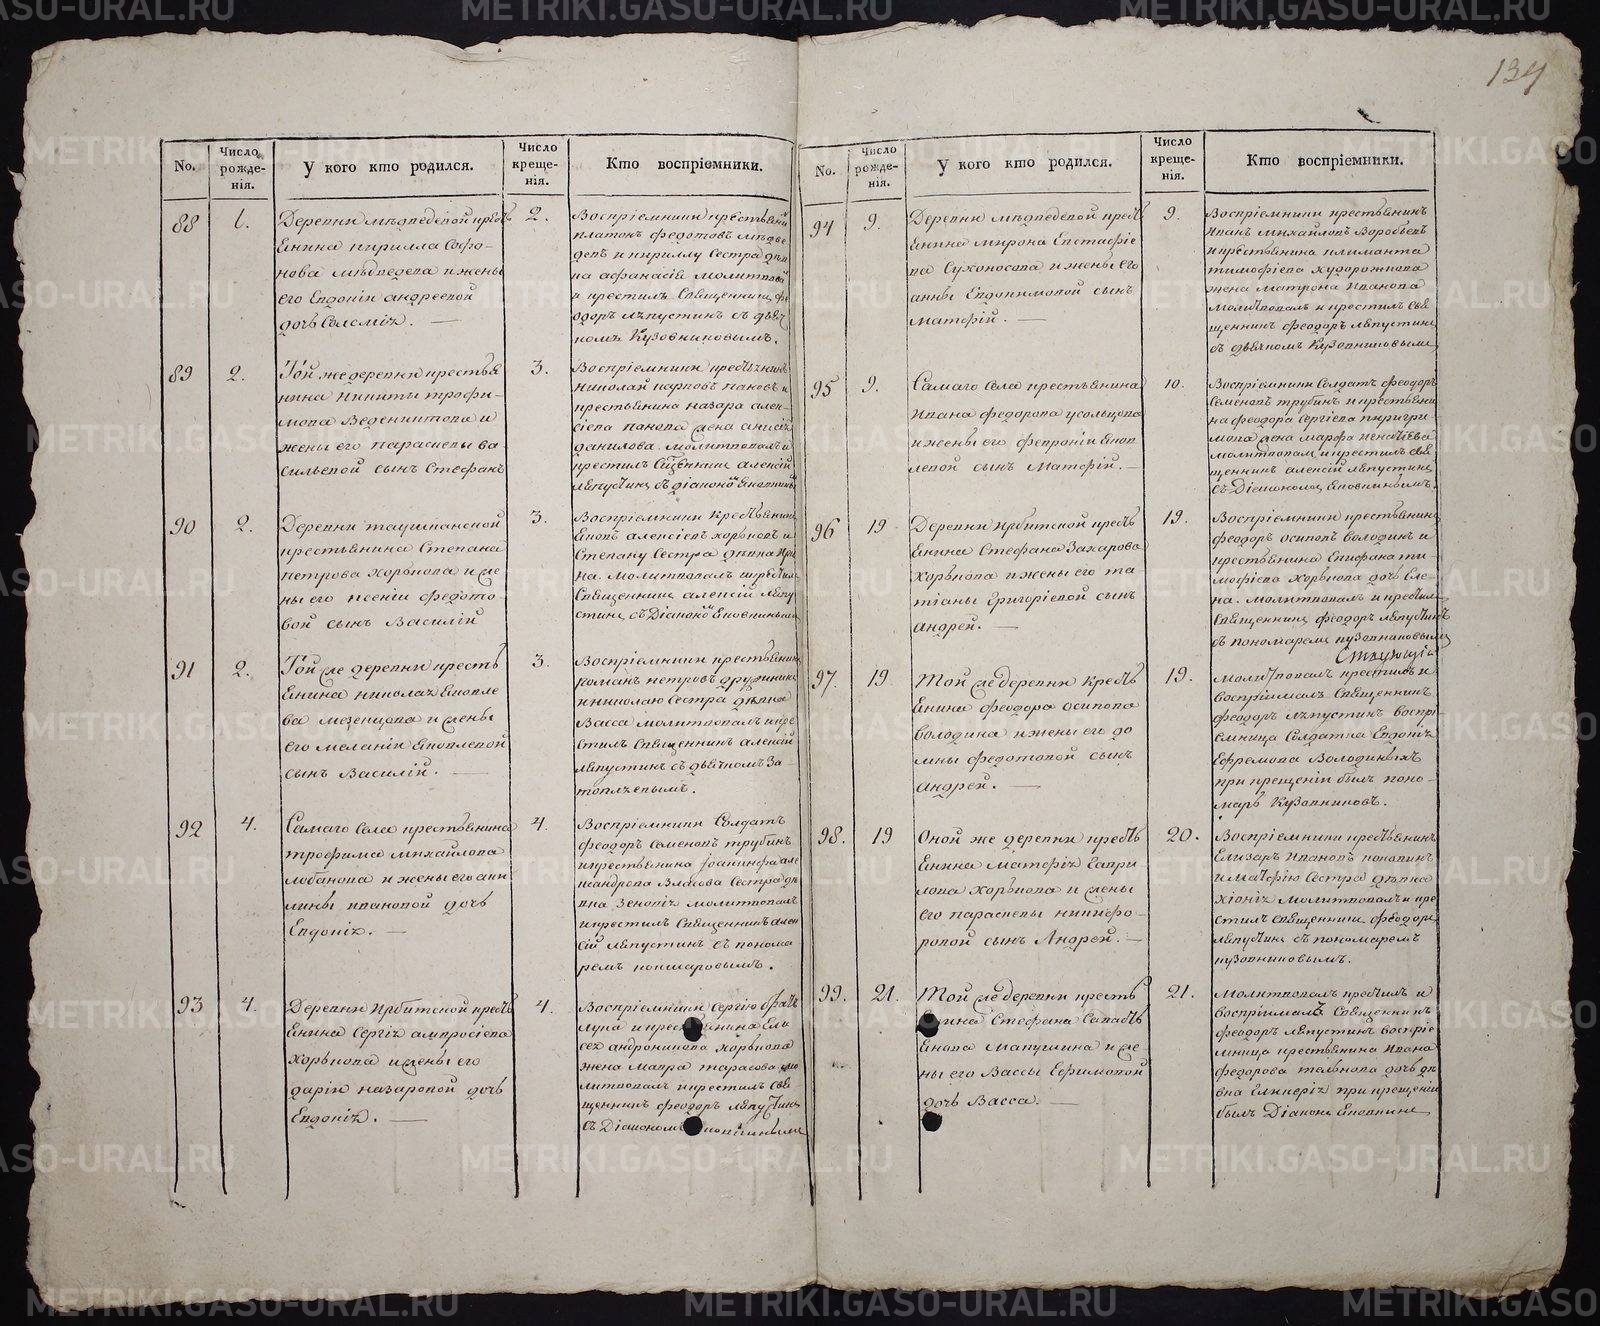 134
No.
Число рожденія.
У кого кто родился.
Число крещенія.
Кто воспріемники.
88
1.
Деревни мѣдведевой кресть
енина кирилла Софо-
нова мѣдведева и жены
его Евдокіи андреевой
дочь Соломія.
2.
Воспріемники крестьянин
платонъ федотовъ мѣдве
девъ и кириллу Сестра дѣв
ка афанасія молитвовал
и крестилъ Священникъ фе
одоръ лѣпустинъ съ дьяч
комъ Кузовниковымъ.
89
2.
Той же деревни крестья
нина Никиты трофи-
мова Ведениктова и
жены его параскевы ва
сильевой сынъ Стефанъ
3.
Воспріемники крестьянинъ
николай карповъ пановъ и
крестьянина назара алек-
сіева панова жена анисія
данилова. молитвовалъ и
крестилъ Священникъ алексій
лѣпустинъ съ діакономъ
90
2.
Деревни
крестьянина Степана
петрова Хорькова и же
ны его ксеніи федото-
вой сынъ Василій
3.
Воспріемники Крестьянинъ
алексіевъ хорьковъ и
Степану Сестра дѣвка Ири
на. молитвовалъ и крестилъ
Священникъ алексій лѣпу
стинъ съ Діакономъ
91
2.
Той же деревни кресть
енина николая
ва мезенцова и жены
его меланіи
сынъ Василій.
3.
Воспріемники крестьянинъ
романъ петровъ дружининъ
и николаю Сестра дѣвка
Васса молитвовалъ и кре
стилъ Священникъ алексій
лѣпустинъ съ дьячкомъ За-
топляевымъ.
92
4.
Самаго Села крестьянина
трофима михайлова
лобанова и жены его аки
лины ивановой дочь
Евдокія.
4.
Воспріемники Солдатъ
феодоръ Семеновъ трубинъ
и крестьянина іоакинфа але
ксандрова Власова Сестра дѣ
вка Зеновія молитвовалъ
и крестилъ Священникъ алек
сій лѣпустинъ съ понома
ремъ кокшаровымъ.
93
4.
Деревни Ирбитской кресть
енина Сергія амвросіева
Хорькова и жены его
даріи назаровой дочь
Евдокія.
4.
Воспріемники сергію
лука и крестьенина Ели
сея андроникова хорькова
жена мавра тарасова мо
литвовалъ и крестилъ свя
щенникъ феодоръ лѣпустинъ
съ Діакономъ
No.
Число рожденія.
У кого кто родился.
Число крещенія.
Кто воспріемники.
94
9.
Деревни мѣдведевой кресть
енина мирона Евстафіе
ва Сухоносова и жены его
анны Евдокимовой сынъ
Матфій.
9.
Воспріемники крестьянинъ
Иванъ Михайловъ Воробьевъ
и крестьянина климанта
тимофіева худорожкова
жена матрона Иванова
молитвовалъ и крестилъ свя
щенникъ феодоръ лѣпустинъ
съ дьячкомъ Кузовниковымъ
95
9.
Самаго Села крестьянина
Ивана федорова усольцова
и жены его февроніи
левой сынъ Матфій.
10.
Воспріемники Солдатъ феодоръ
Семеновъ трубинъ и крестьяни
на феодора Сергіева
жена марфа
молитвовалъ и крестилъ свя
щенникъ алексій лѣпустинъ
съ Діакономъ
96
19
Деревни Ирбитской кресть
енина Стефана Захарова
Хорькова и жены его та
тіаны Григоріевой сынъ
андрей.
19.
Воспріемники крестьянинъ
феодоръ осиповъ володинъ и
крестьянина Епифана ти-
мофіева Хорькова дочь Еле-
на. молитвовалъ и крестилъ
Священникъ феодоръ лѣпустинъ
съ пономаремъ кузовниковымъ
97.
19
Той же деревни Кресть
енина феодора осипова
володина и жены его до
мны федотовой сынъ
андрей.
19.
молитвовалъ крестилъ и
воспріималъ Священникъ
феодоръ лѣпустинъ воспрі-
емница Солдатка Евдокія
Ефремова Володиныхъ
при крещеніи былъ поно-
марь Кузовниковъ.
98.
19
Оной же деревни кресть
енина Матфія Гаври
лова Хорькова и жены
его параскевы никифо-
ровой сынъ Андрей.
20.
Воспріемники крестьянинъ
Елизаръ Ивановъ
и матфію Сестра дѣвка
хіонія молитвовалъ и кре
стилъ священникъ феодоръ
лѣпустинъ съ пономаремъ
кузовниковымъ.
99.
21.
Той же деревни кресть
енина Стефана Савать
Макушина и же-
ны его Вассы Ефимовой
дочь Васса.
21.
Молитвовалъ крестилъ и
воспріималъ Священникъ
феодоръ лѣпустинъ воспріе
мница крестьянина Ивана
федорова дочь дѣ
вка Гликерія при крещеніи
былъ Діаконъ
METRIKI.GASO-URAL.RU